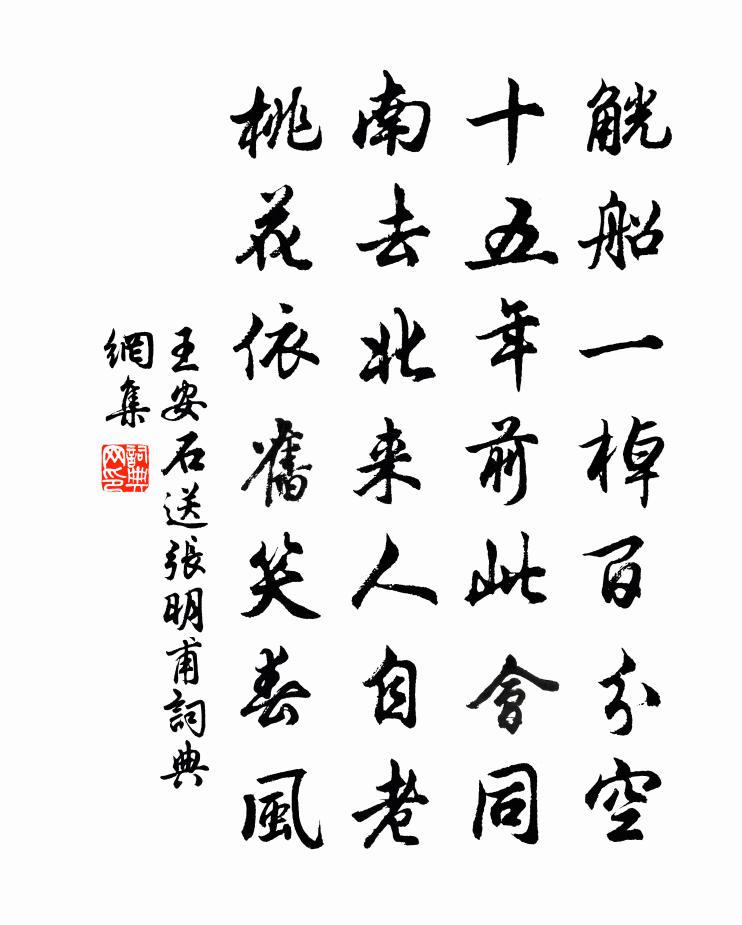 觥船一棹百分空
十五年前此會同
南去北来人自老
桃花依舊笑春風
王安石送張明甫詞典
網集
詞典
网印